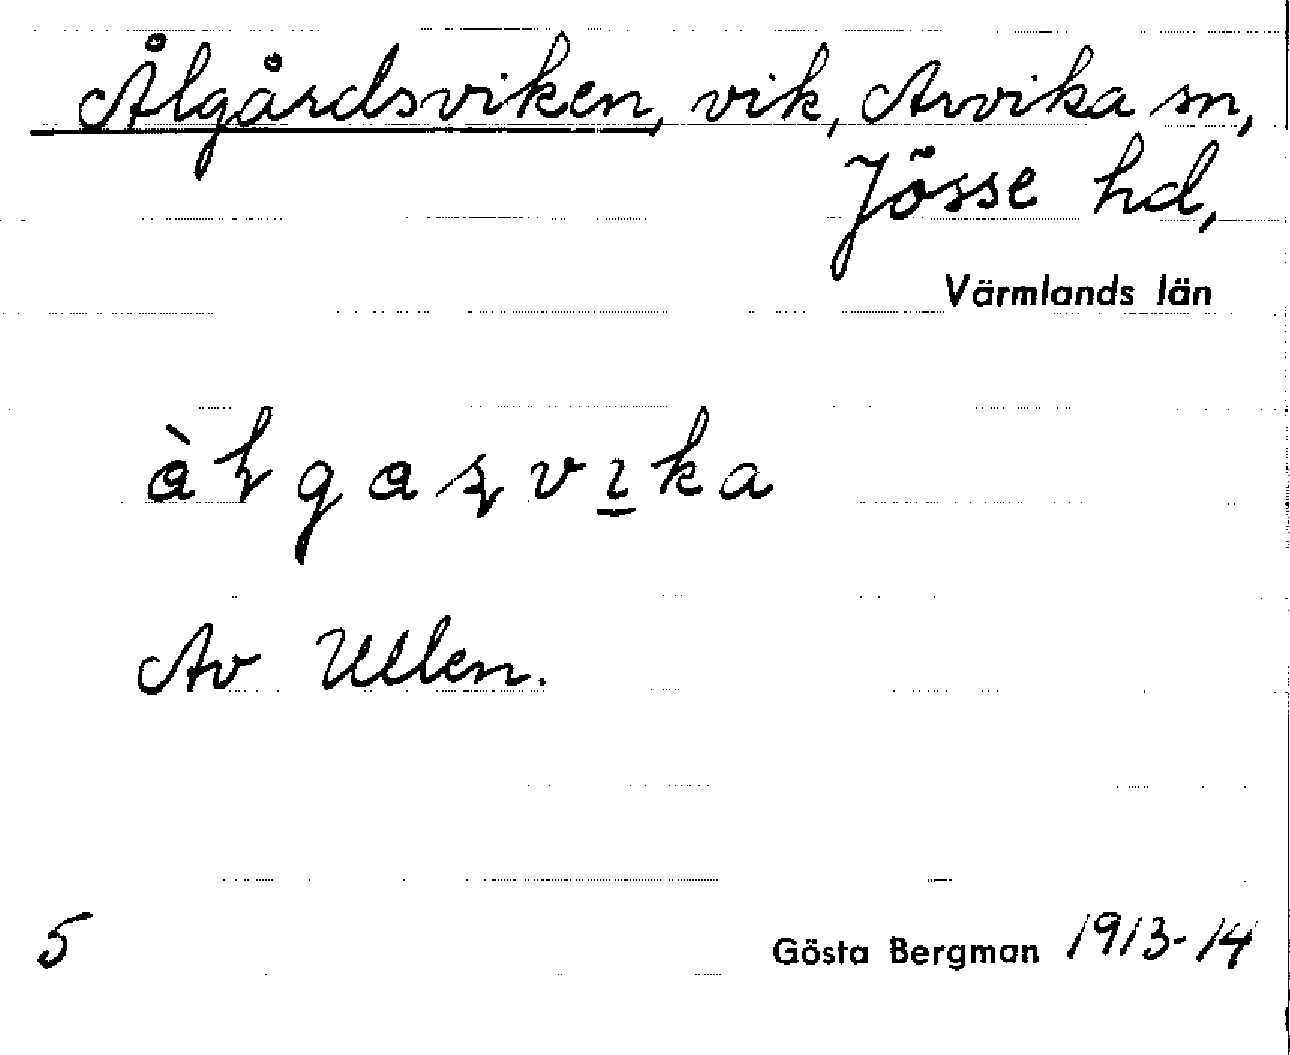 Ålgårdsviken, vik, Arvika sn,
Jösse hd,
Värmlands län
Av Ullen.
5
Gösta Bergman 1913-14